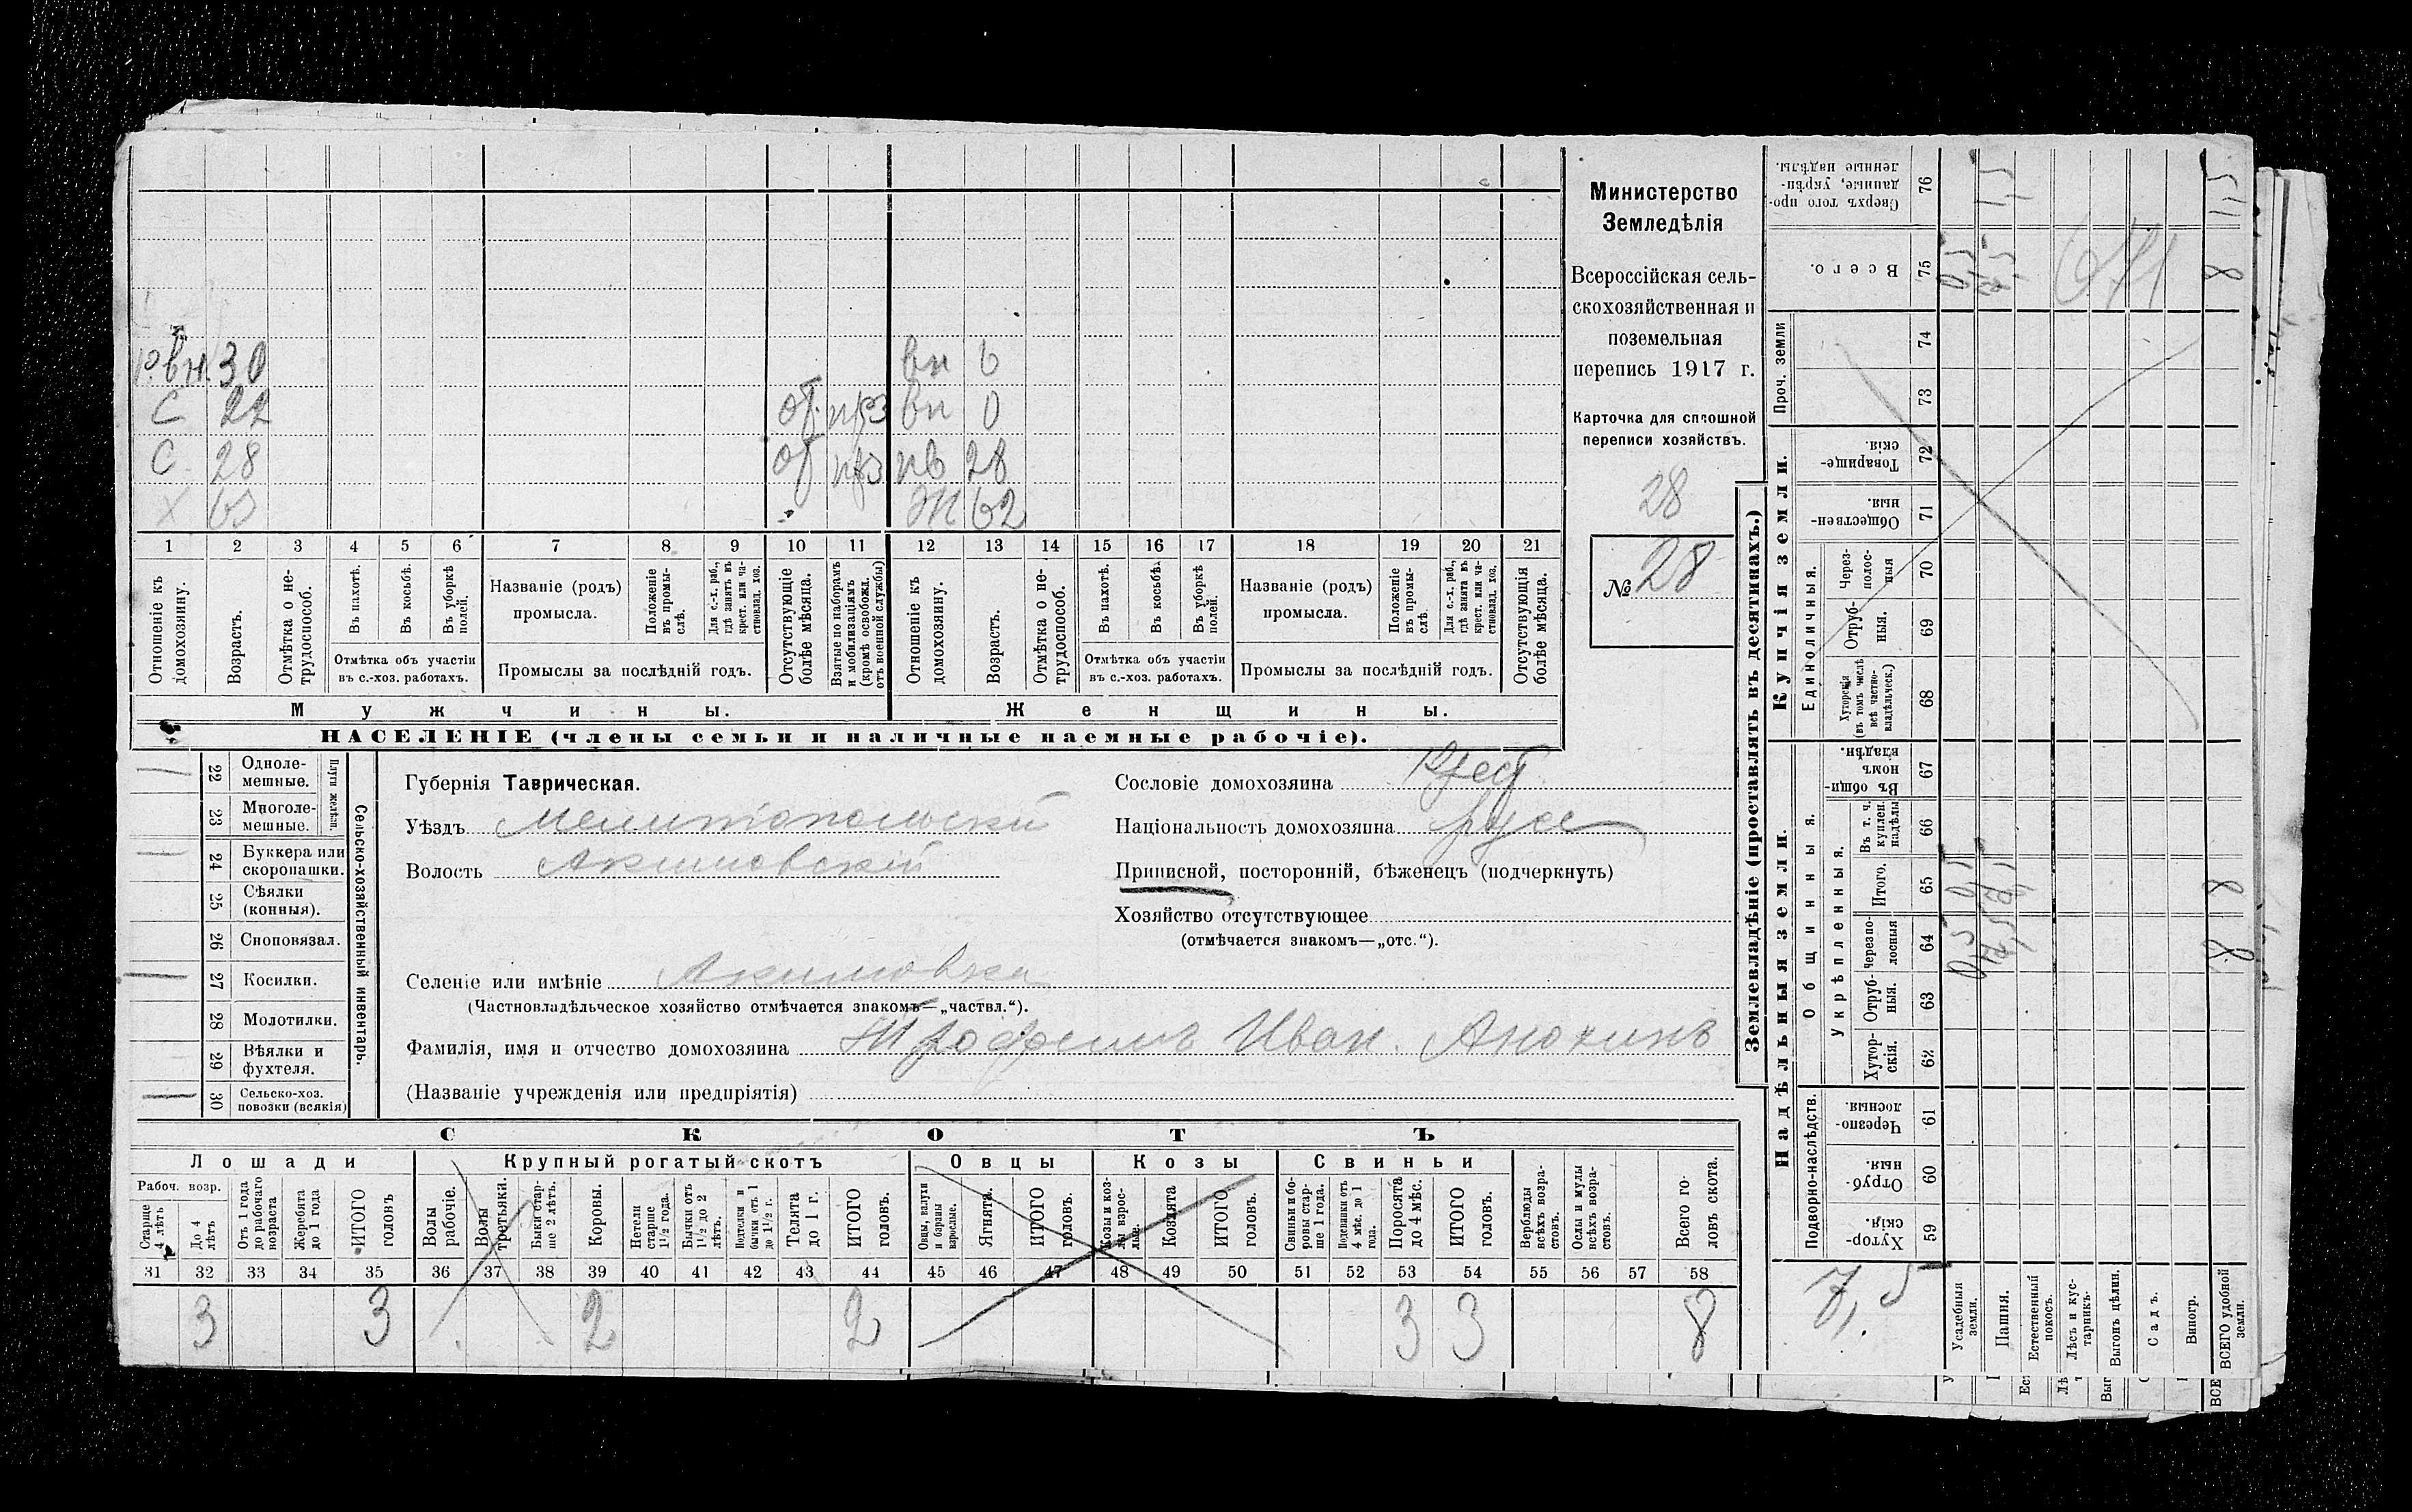 Министерство
Земледѣлія
Всероссійская сель-
скохозяйственная и
поземельная
перепись 1917 г.
Карточка для сплошной
переписи хозяйствъ.
28
№ 28
вн. 30 вн 6
С 22 от. вн 0
С 28 от 28
Х 63 Ж 62
1 2 3 4 5 6 7 8 9 10 11 12 13 14 15 16 17 18 19 20 21
Отношеніе къ домохозяину.
Возрастъ.
Отмѣтка о не-трудоспособ.
Въ пахотѣ.
Въ косьбѣ.
Въ уборкѣ полей.
Отмѣтка объ участіи
въ с.-хоз. работахъ.
Названіе (родъ)
промысла.
Положеніе въ промы-слѣ.
Для с.-х. раб., гдѣ занятъ въ крест. или ча-стновлад. хоз.
Промыслы за послѣдній годъ.
Отсутствующіе болѣе мѣсяца.
Взятые по наборамъ и мобилизаціямъ (кромѣ освобожд. отъ военной службы)
Отношеніе къ домохозяину.
Возрастъ.
Отмѣтка о не-трудоспособ.
Въ пахотѣ.
Въ косьбѣ.
Въ уборкѣ полей.
Отмѣтка объ участіи
въ с.-хоз. работахъ.
Названіе (родъ)
промысла.
Положеніе въ промы-слѣ.
Для с.-х. раб., гдѣ занята въ крест. или ча-стновлад. хоз.
Промыслы за послѣдній годъ.
Отсутствующія болѣе мѣсяца.
Мужчины. Женщины.
НАСЕЛЕНІЕ (члены семьи и наличные наемные рабочіе).
22 Одноле-мешные.
23 Многоле-мешные.
Плуги желѣзн.
24 Буккера или скоропашки.
25 Сѣялки (конныя).
26 Сноповязал.
27 Косилки.
28 Молотилки.
29 Вѣялки и фухтеля.
30 Сельско-хоз. повозки (всякія)
Сельско-хозяйственный инвентарь.
Губернія Таврическая.
Уѣздъ Мелитопольскій
Волость Акимовскій
Селеніе или имѣніе Акимовка
(Частновладѣльческое хозяйство отмѣчается знакомъ—„частвл.“).
Фамилія, имя и отчество домохозяина Трофимъ Иван. Анохинъ
(Названіе учрежденія или предпріятія)
Сословіе домохозяина Крест
Національность домохозяина русс
Приписной, посторонній, бѣженецъ (подчеркнуть)
Хозяйство отсутствующее
(отмѣчается знакомъ—„отс.“).
СКОТЪ
Лошади Крупный рогатый скотъ Овцы Козы Свиньи
Рабоч. возр.
Старше 4 лѣтъ
До 4 лѣтъ
Отъ 1 года до рабочаго возраста
Жеребята до 1 года
ИТОГО головъ
Волы рабочіе.
Волы третьяки.
Быки стар-ше 2 лѣтъ.
Коровы.
Нетели старше 1½ года.
Бычки отъ 1½ до 2 лѣтъ.
Подтелки и бычки отъ 1 до 1½ г.
Телята до 1 г.
ИТОГО головъ.
Овцы, валухи и бараны взрослые.
Ягнята.
ИТОГО головъ.
Козы и коз-лы взрос-лые.
Козлята
ИТОГО головъ.
Свиньи и бо-ровы стар-ше 1 года.
Подсвинки отъ 4 мѣс. до 1 года.
Поросята до 4 мѣс.
ИТОГО головъ.
Верблюды всѣхъ возра-стовъ.
Ослы и мулы всѣхъ возра-стовъ.
Всего го-ловъ скота.
31 32 33 34 35 36 37 38 39 40 41 42 43 44 45 46 47 48 49 50 51 52 53 54 55 56 57 58
3 3 2 2 3 3 8
Землевладѣніе (проставлять въ десятинахъ.)
Надѣльныя земли. Купчія земли.
Подворно-наслѣдств.
Общинныя.
Укрѣпленныя.
Единоличныя.
Проч. земли
Хутор-скія. 59
Отруб-ныя. 60
Черезпо-лосныя. 61
Хутор-скія. 62
Отруб-ныя. 63
Черезпо-лосныя 64
Итого. 65
Въ т. ч. куплен. надѣлы 66
Въ общи-номъ владѣн. 67
Хуторскія (въ томъ числѣ всѣ частно-владѣльческ.) 68
Отруб-ныя. 69
Через-полос-ныя 70
Обществен-ныя. 71
Товарище-скія. 72
73
74
Всего. 75
Сверхъ того про-данные, укрѣп-ленные надѣлы. 76
Усадебныя земли. 0,5
Пашня. 7,5
Естественный покосъ.
Лѣсъ и кус-тарникъ.
Выгонъ цѣлин.
Садъ.
Виногр.
ВСЕГО удобной земли. 8 8 8
7,5